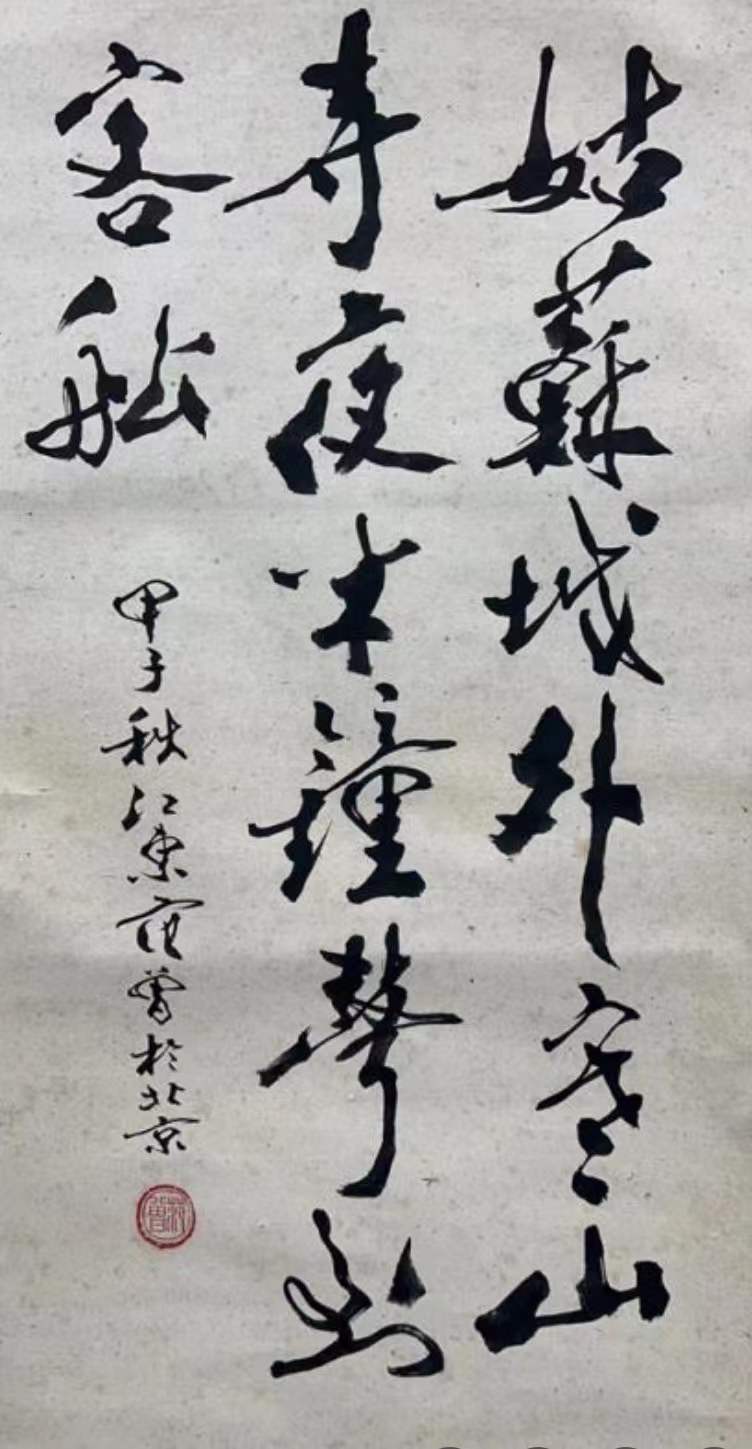 姑蘇城外寒山
寺夜半鐘聲到
客船
甲子秋江東范曾於北京
范曾